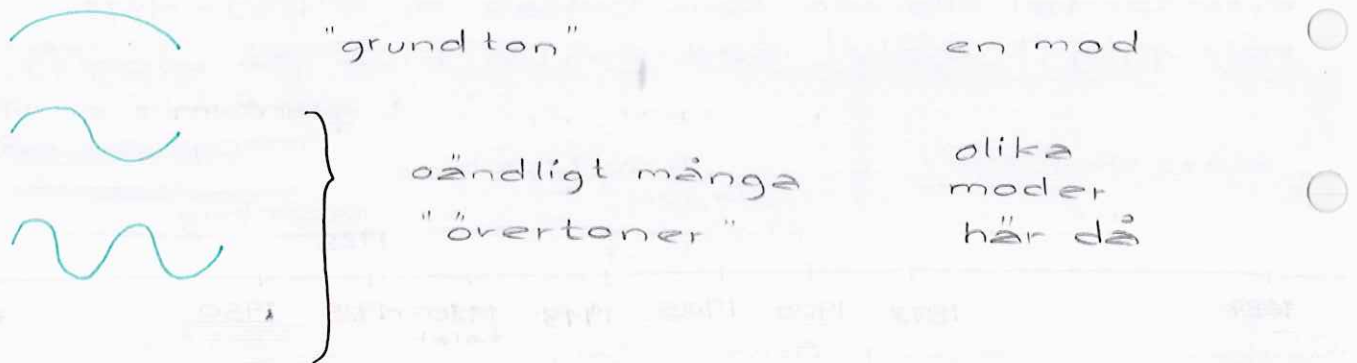 "grundton" en mod
oändligt många
"övertoner"
olika
moder
här då